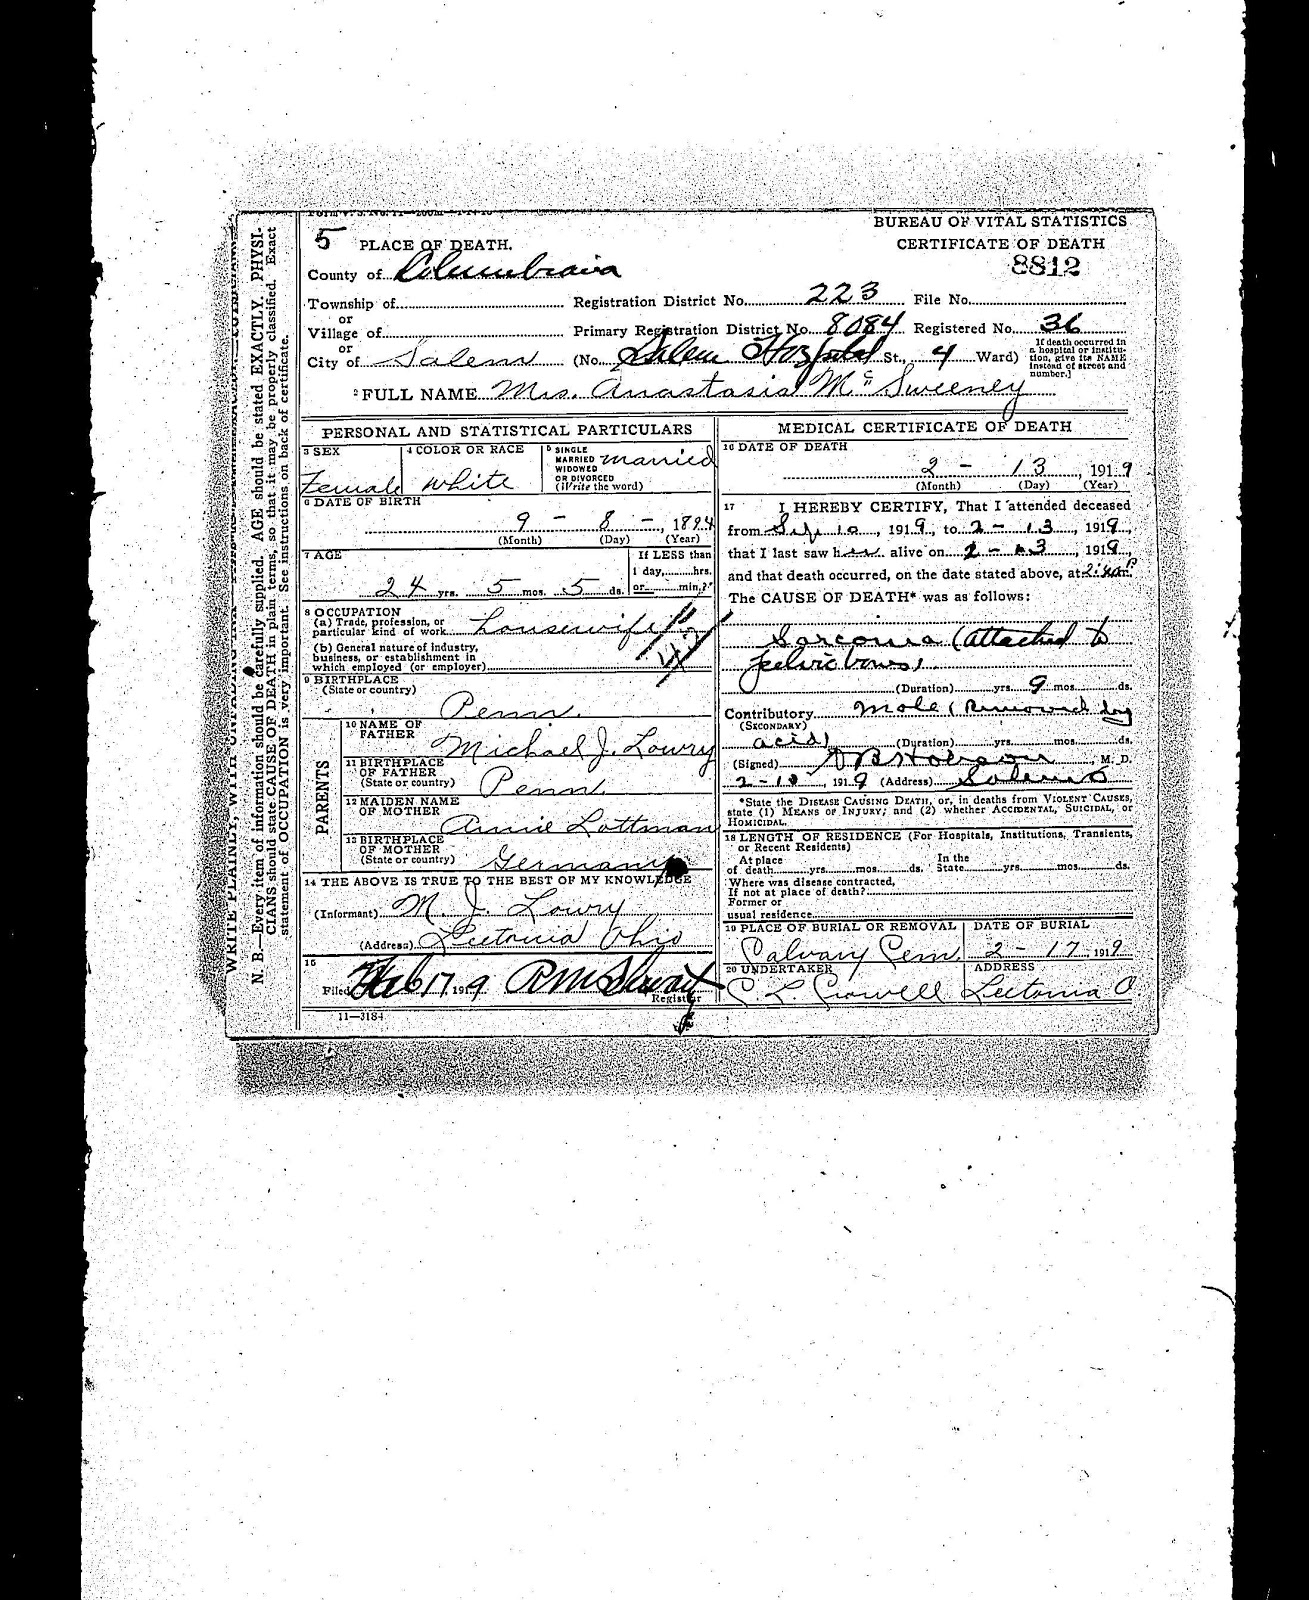 WRITE PLAINLY, WITH UNFADING INK
N. B.—Every item of information should be carefully supplied. AGE should be stated EXACTLY. PHYSI-
CIANS should state CAUSE OF DEATH in plain terms, so that it may be properly classified. Exact
statement of OCCUPATION is very important. See instructions on back of certificate.
BUREAU OF VITAL STATISTICS
5 PLACE OF DEATH. CERTIFICATE OF DEATH
County of Columbiana 8812
Township of Registration District No. 223 File No.
or
Village of Primary Registration District No. 8084 Registered No. 36
or
City of Salem (No. Salem Hospital St., 4 Ward) If death occurred in a hospital or institution, give its NAME instead of street and number.]
2 FULL NAME Mrs. Anastasia Mc Sweeney
PERSONAL AND STATISTICAL PARTICULARS
3 SEX Female
4 COLOR OR RACE White
5 SINGLE MARRIED WIDOWED OR DIVORCED (Write the word) married
6 DATE OF BIRTH
9 - 8 - 1894
(Month) (Day) (Year)
7 AGE If LESS than
1 day, hrs.
24 yrs. 5 mos. 5 ds. or min.?
8 OCCUPATION
(a) Trade, profession, or
particular kind of work housewife
(b) General nature of industry,
business, or establishment in
which employed (or employer)
9 BIRTHPLACE
(State or country)
Penn.
PARENTS
10 NAME OF FATHER Michael J. Lowry
11 BIRTHPLACE OF FATHER (State or country) Penn.
12 MAIDEN NAME OF MOTHER Annie Lottman
13 BIRTHPLACE OF MOTHER (State or country) Germany
14 THE ABOVE IS TRUE TO THE BEST OF MY KNOWLEDGE
(Informant) M. J. Lowry
(Address) Leetonia Ohio
15
Filed Feb 17 1919
Registrar
11—3184
MEDICAL CERTIFICATE OF DEATH
16 DATE OF DEATH
2 - 13, 1919
(Month) (Day) (Year)
17 I HEREBY CERTIFY, That I attended deceased
from Sep 10, 1919, to 2 - 13, 1919,
that I last saw her alive on 2 - 13, 1919,
and that death occurred, on the date stated above, at
The CAUSE OF DEATH* was as follows:
Sarcoma (attached to
pelvic bones)
(Duration) yrs. 9 mos. ds.
Contributory Mole (Removed by
(SECONDARY)
acid) (Duration) yrs. mos. ds.
(Signed) Hobson, M. D.
1919 (Address) Salem O
*State the DISEASE CAUSING DEATH, or, in deaths from VIOLENT CAUSES,
state (1) MEANS OF INJURY; and (2) whether ACCIDENTAL, SUICIDAL, or
HOMICIDAL.
18 LENGTH OF RESIDENCE (For Hospitals, Institutions, Transients,
or Recent Residents)
At place In the
of death yrs. mos. ds. State yrs. mos. ds.
Where was disease contracted,
If not at place of death?
Former or
usual residence
19 PLACE OF BURIAL OR REMOVAL DATE OF BURIAL
Calvary Cem. 2 - 17, 1919
20 UNDERTAKER ADDRESS
C. L. Crowell Leetonia O.